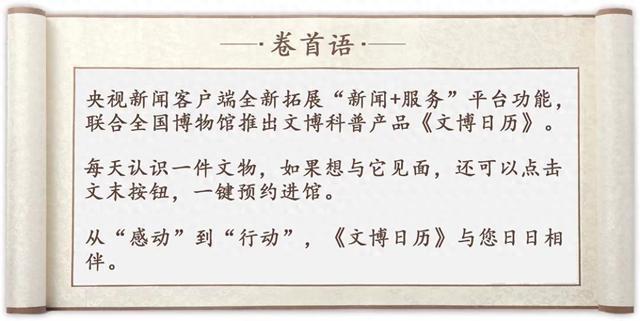 卷首语
央视新闻客户端全新拓展“新闻+服务”平台功能，
联合全国博物馆推出文博科普产品《文博日历》。
每天认识一件文物，如果想与它见面，还可以点击
文末按钮，一键预约进馆。
从“感动”到“行动”，《文博日历》与您日日相
伴。